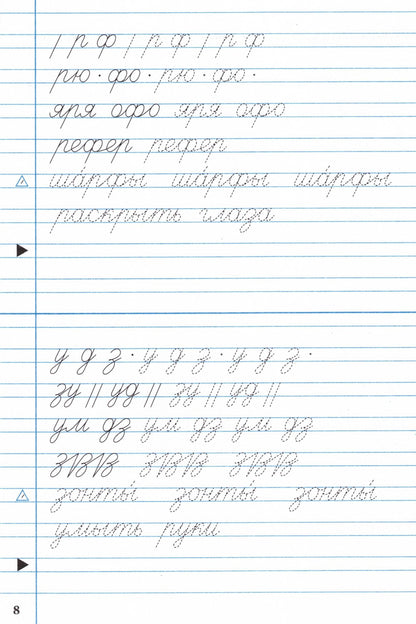 / р ф / р ф / р ф
рю · фо · рю · фо ·
яря офо яря офо
рефер рефер
ша́рфы ша́рфы ша́рфы
раскрыть глаза
у д з · у д з · у д з ·
зу // уд // зу // уд //
ум дз ум дз ум дз
ЗВВ ЗВВ ЗВВ
зонты́ зонты́ зонты́
умыть руки
8